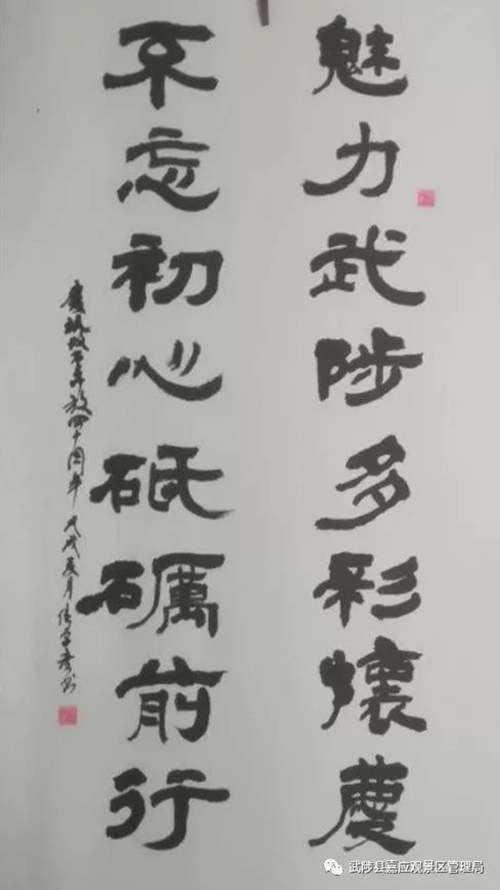 魅力武陟多彩懷慶
不忘初心砥礪前行
慶祝改革开放四十周年 戊戌夏月
武陟县嘉应观景区管理局